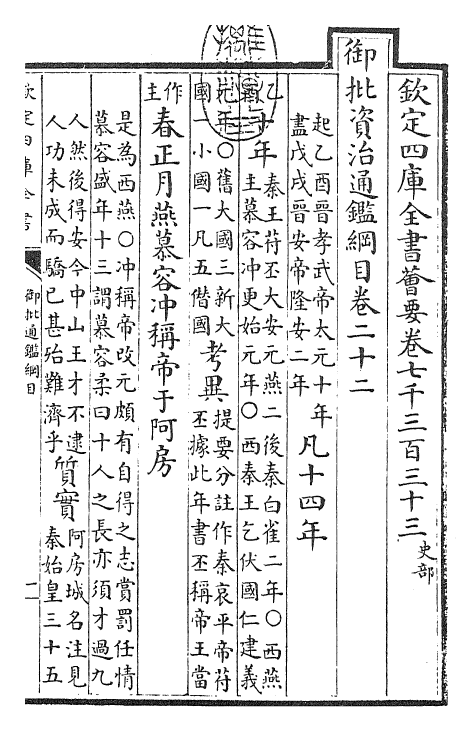 欽定四庫全書薈要卷七千三百三十三 史部
御批資治通鑑綱目卷二十二
起乙酉晉孝武帝太元十年
盡戊戌晉安帝隆安二年
凡十四年
乙 十年
秦王苻丕大安元燕二後秦白雀二年〇西燕
主慕容沖更始元年〇西秦王乞伏國仁建義
元年〇舊大國三新大
國一小國一凡五僣國
考異
提要分註作秦哀平帝苻
丕據此年書丕稱帝王當
作
主
春正月燕慕容沖稱帝于阿房
是為西燕〇沖稱帝改元頗有自得之志賞罰任情
慕容盛年十三謂慕容柔曰十人之長亦須才過九
人然後得安今中山王才不逮
人功未成而驕已甚殆難濟乎
質實
阿房城名注見
秦始皇三十五
欽定四庫全書
御批通鑑綱目
一